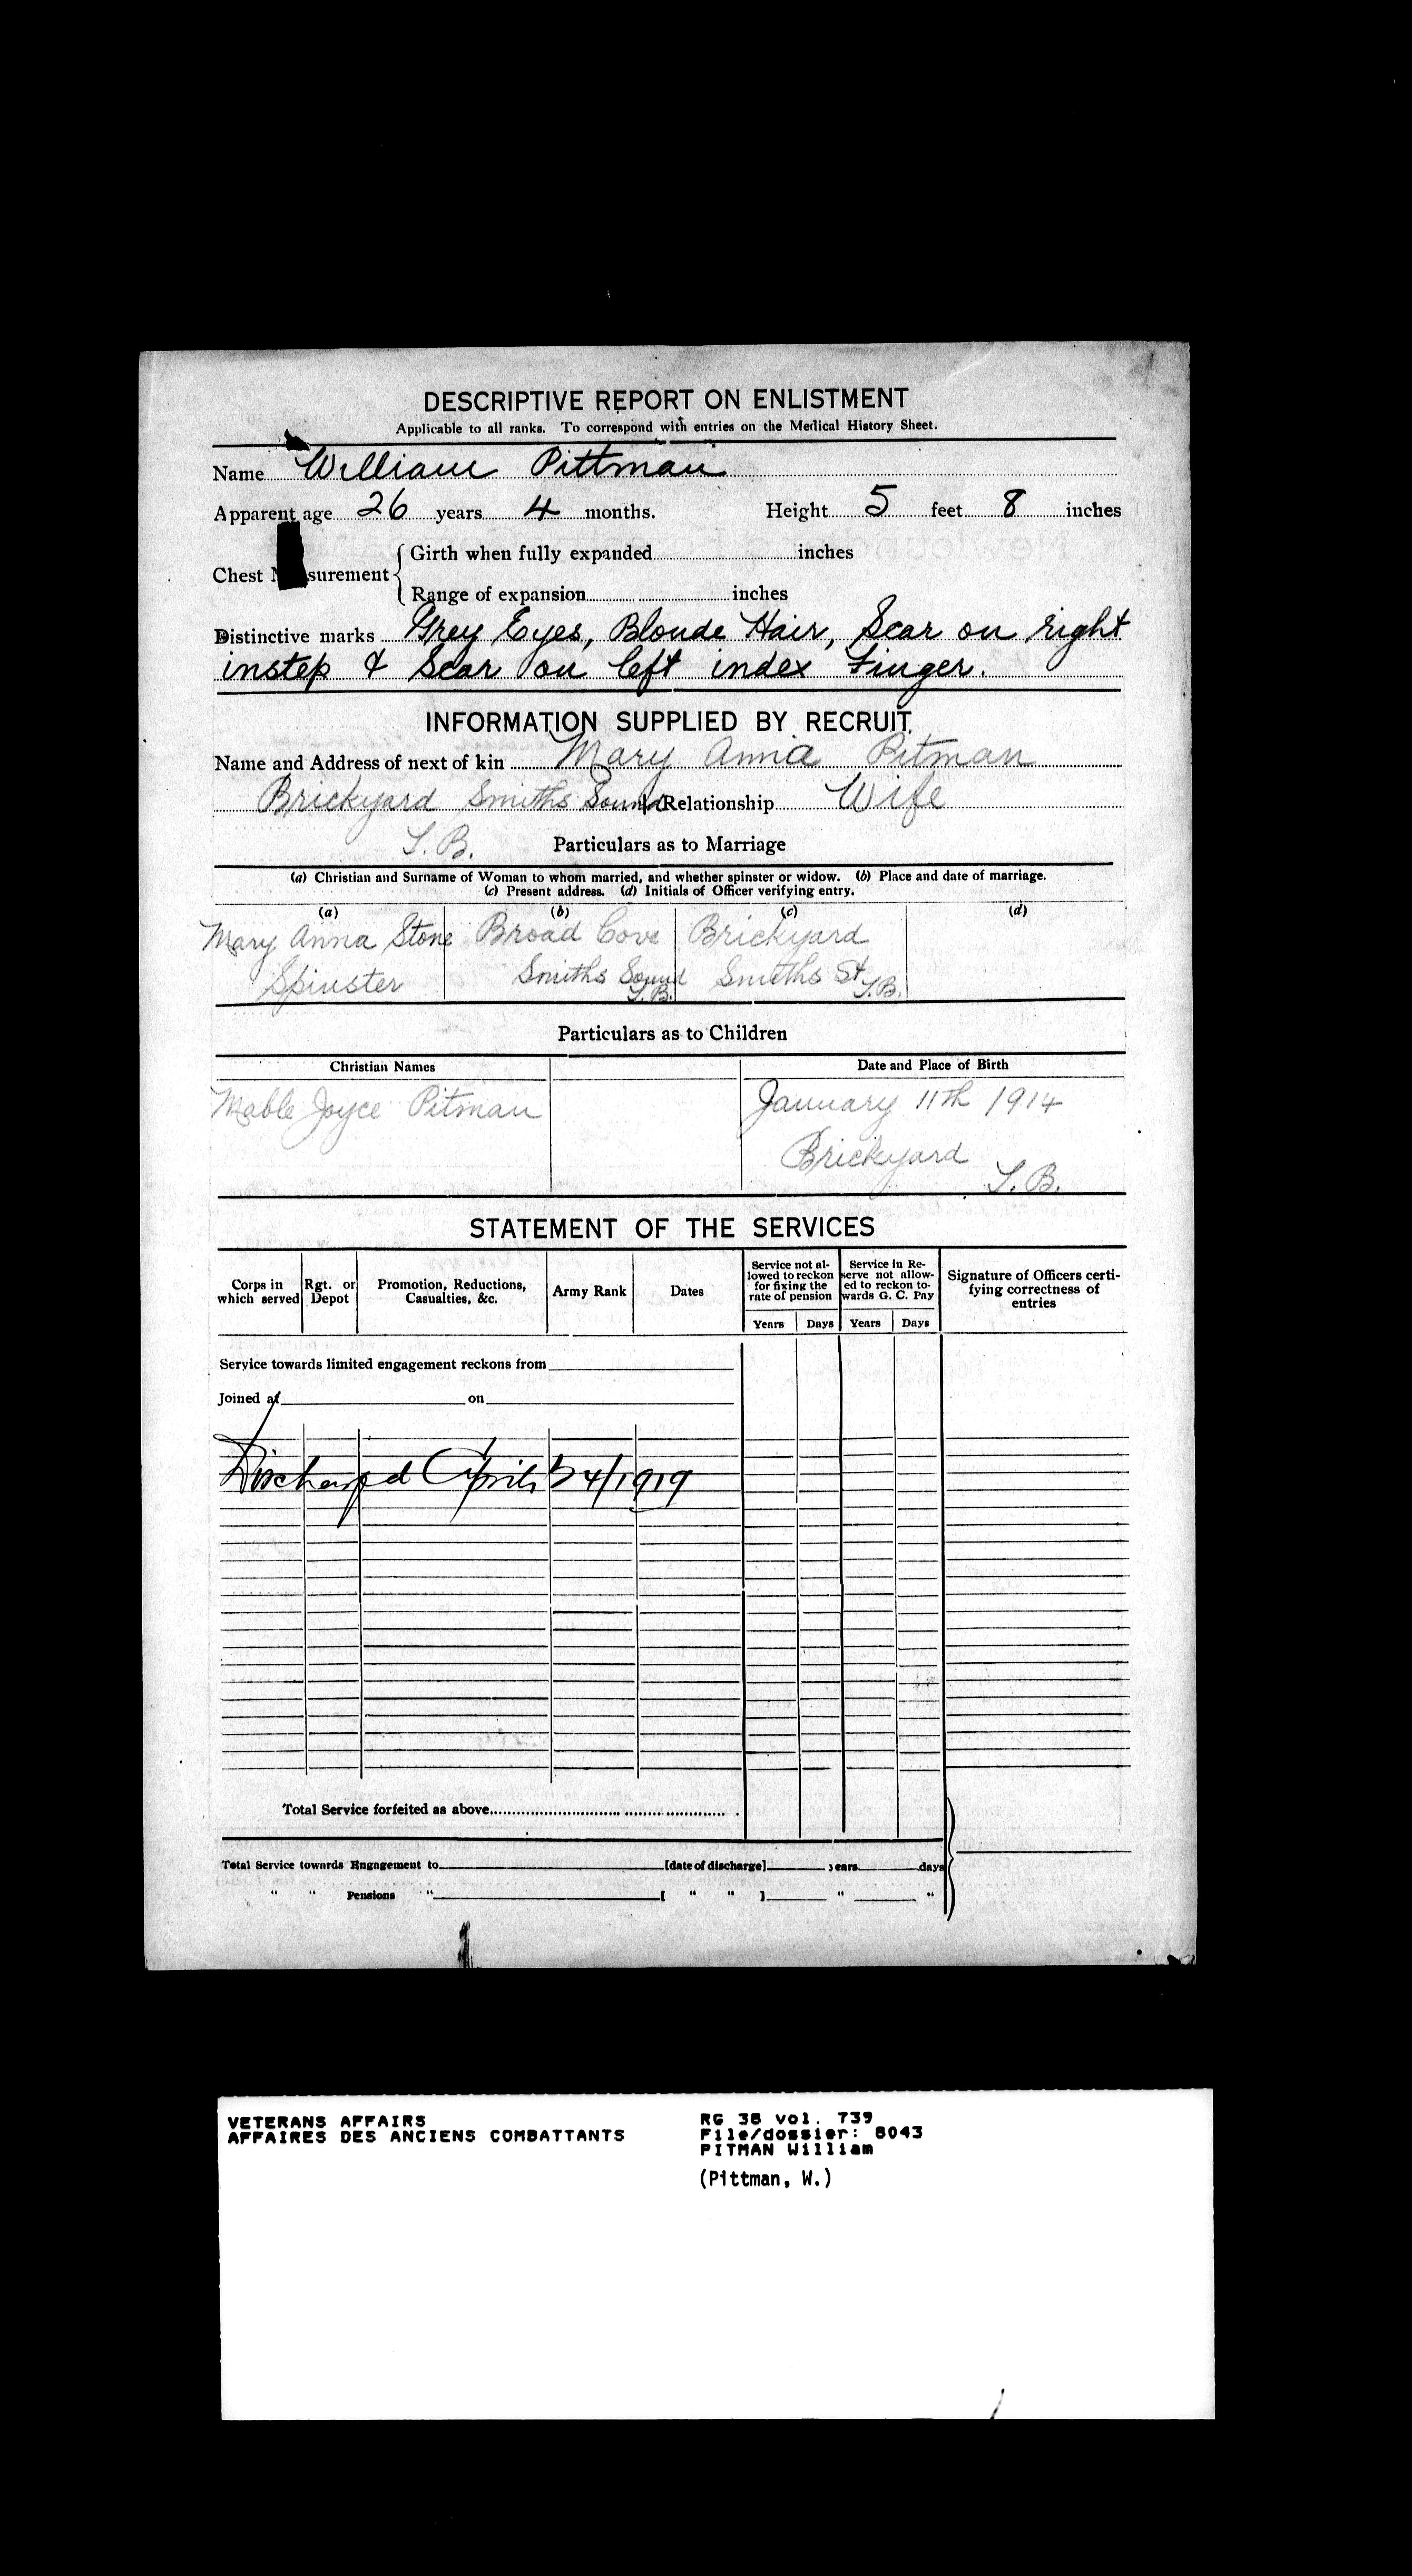 DESCRIPTIVE REPORT ON ENLISTMENT
Applicable to all ranks. To correspond with entries on the Medical History Sheet.
Name William Pittman
Apparent age 26 years 4 months. Height 5 feet 8 inches
Girth when fully expanded inches
Chest surement
Range of expansion inches
Distinctive marks Grey Eyes, Blonde Hair, Scar on right
instep & Scar on left index Finger.
INFORMATION SUPPLIED BY RECRUIT
Name and Address of next of kin Mary Anna Pitman
Brickyard Smiths Sound Relationship Wife
T.B. Particulars as to Marriage
(a) Christian and Surname of Woman to whom married, and whether spinster or widow. (b) Place and date of marriage.
(c) Present address. (d) Initials of Officer verifying entry.
(a) (b) (c) (d)
Mary Anna Stone Broad Cove Brickyard
Spinster Smiths Sound Smiths Sd
T.B. T.B.
Particulars as to Children
Christian Names Date and Place of Birth
Mable Joyce Pitman January 11th 1914
Brickyard
T.B.
STATEMENT OF THE SERVICES
Corps in which served Rgt. or Depot Promotion, Reductions, Casualties, &c. Army Rank Dates Service not allowed to reckon for fixing the rate of pension Service in Reserve not allowed to reckon towards G. C. Pay Signature of Officers certifying correctness of entries
Years Days Years Days
Service towards limited engagement reckons from
Joined at on
Discharged April 24/1919
Total Service forfeited as above
Total Service towards Engagement to [date of discharge] years days
" " Pensions " [ " " ] " "
VETERANS AFFAIRS RG 38 vol. 739
AFFAIRES DES ANCIENS COMBATTANTS File/dossier: 8043
PITMAN William
(Pittman, W.)